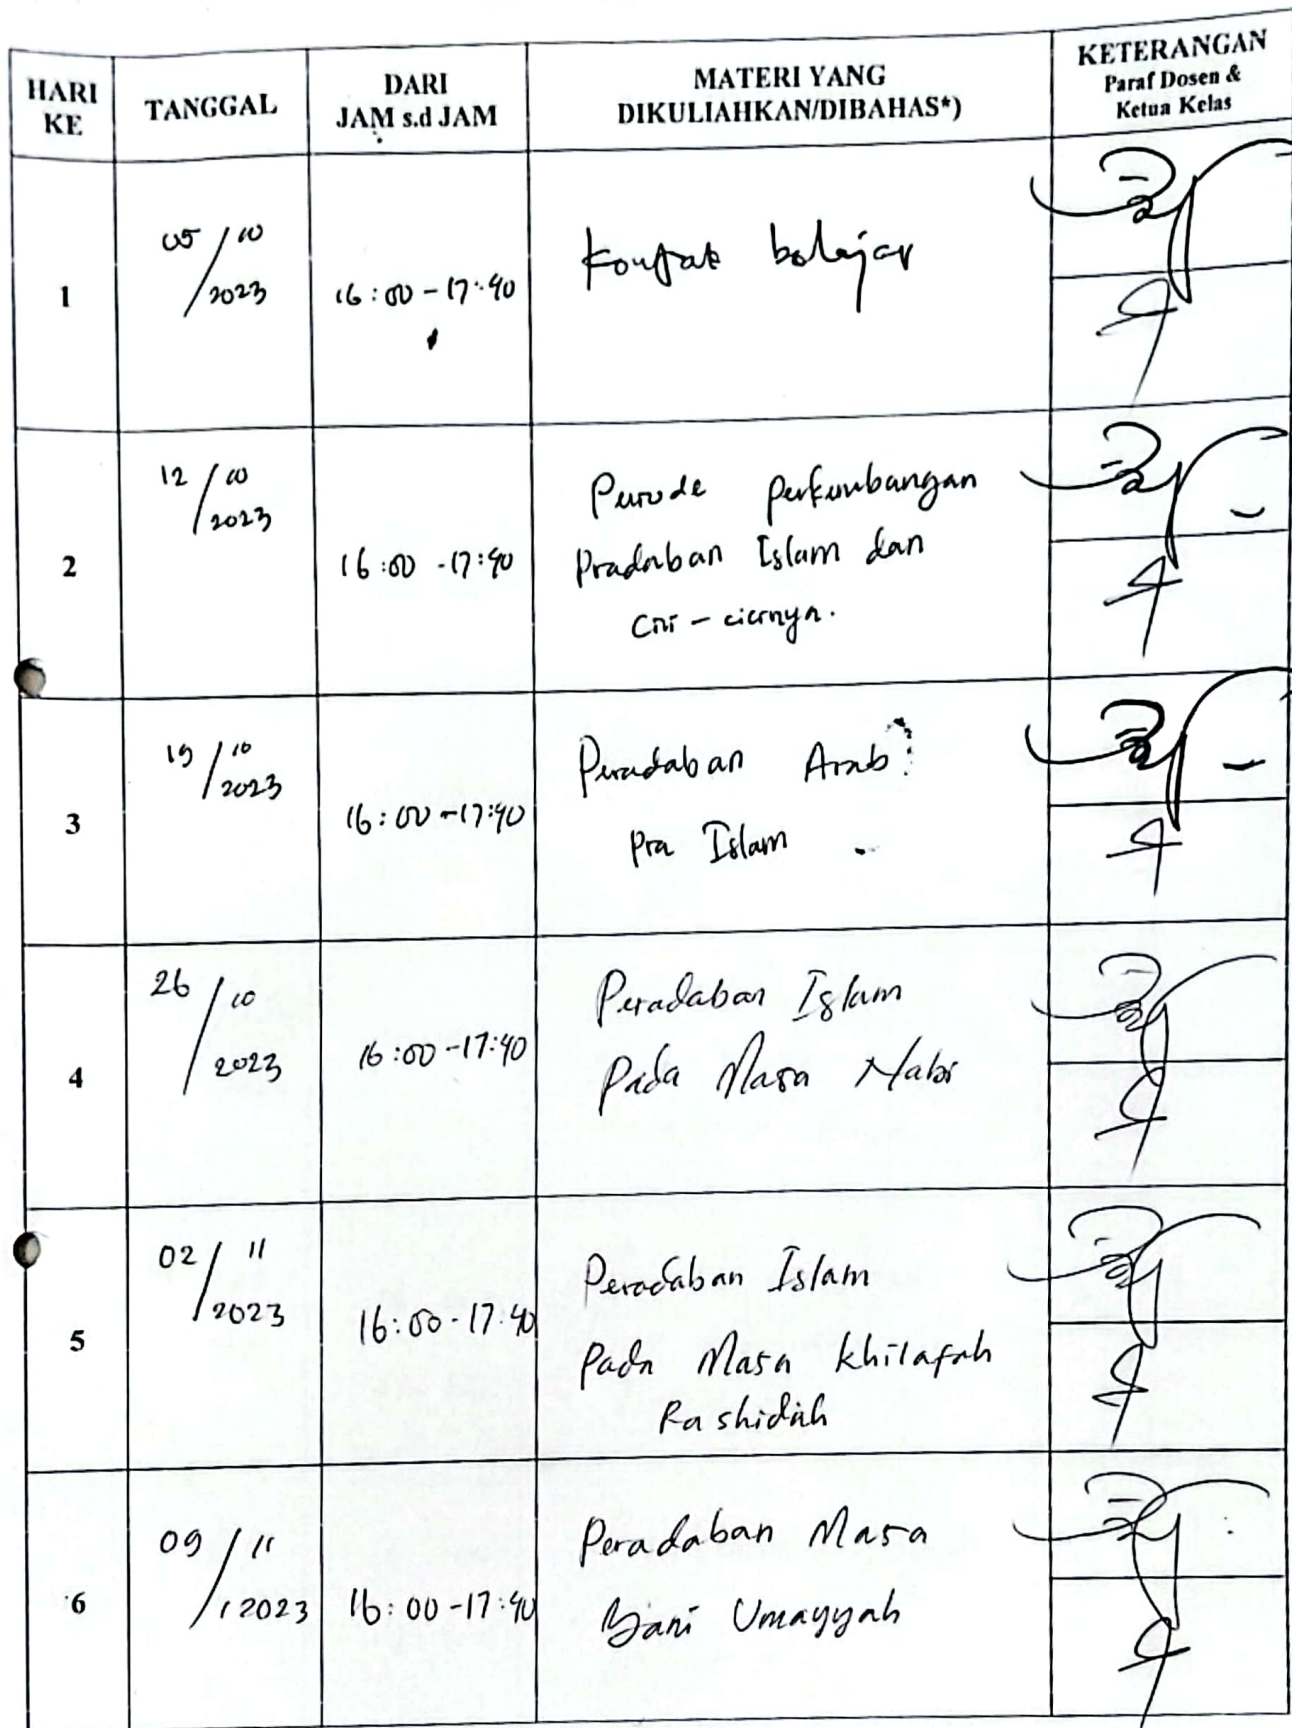 HARI KE
TANGGAL
DARI
JAM s.d JAM
MATERI YANG
DIKULIAHKAN/DIBAHAS*)
KETERANGAN
Paraf Dosen &
Ketua Kelas
1
05/10
2023
16:00-17:40
Kontrak belajar
2
12/10
2023
16:00-17:40
Periode Perkembangan
Pradaban Islam dan
Ciri-cirinya.
3
19/10
2023
16:00-17:40
Peradaban Arab
Pra Islam
4
26/10
2023
16:00-17:40
Peradaban Islam
Pada Masa Nabi
5
02/11
2023
16:00-17:40
Peradaban Islam
Pada Masa Khilafah
Rashidah
6
09/11
2023
16:00-17:40
Peradaban Masa
Bani Umayyah